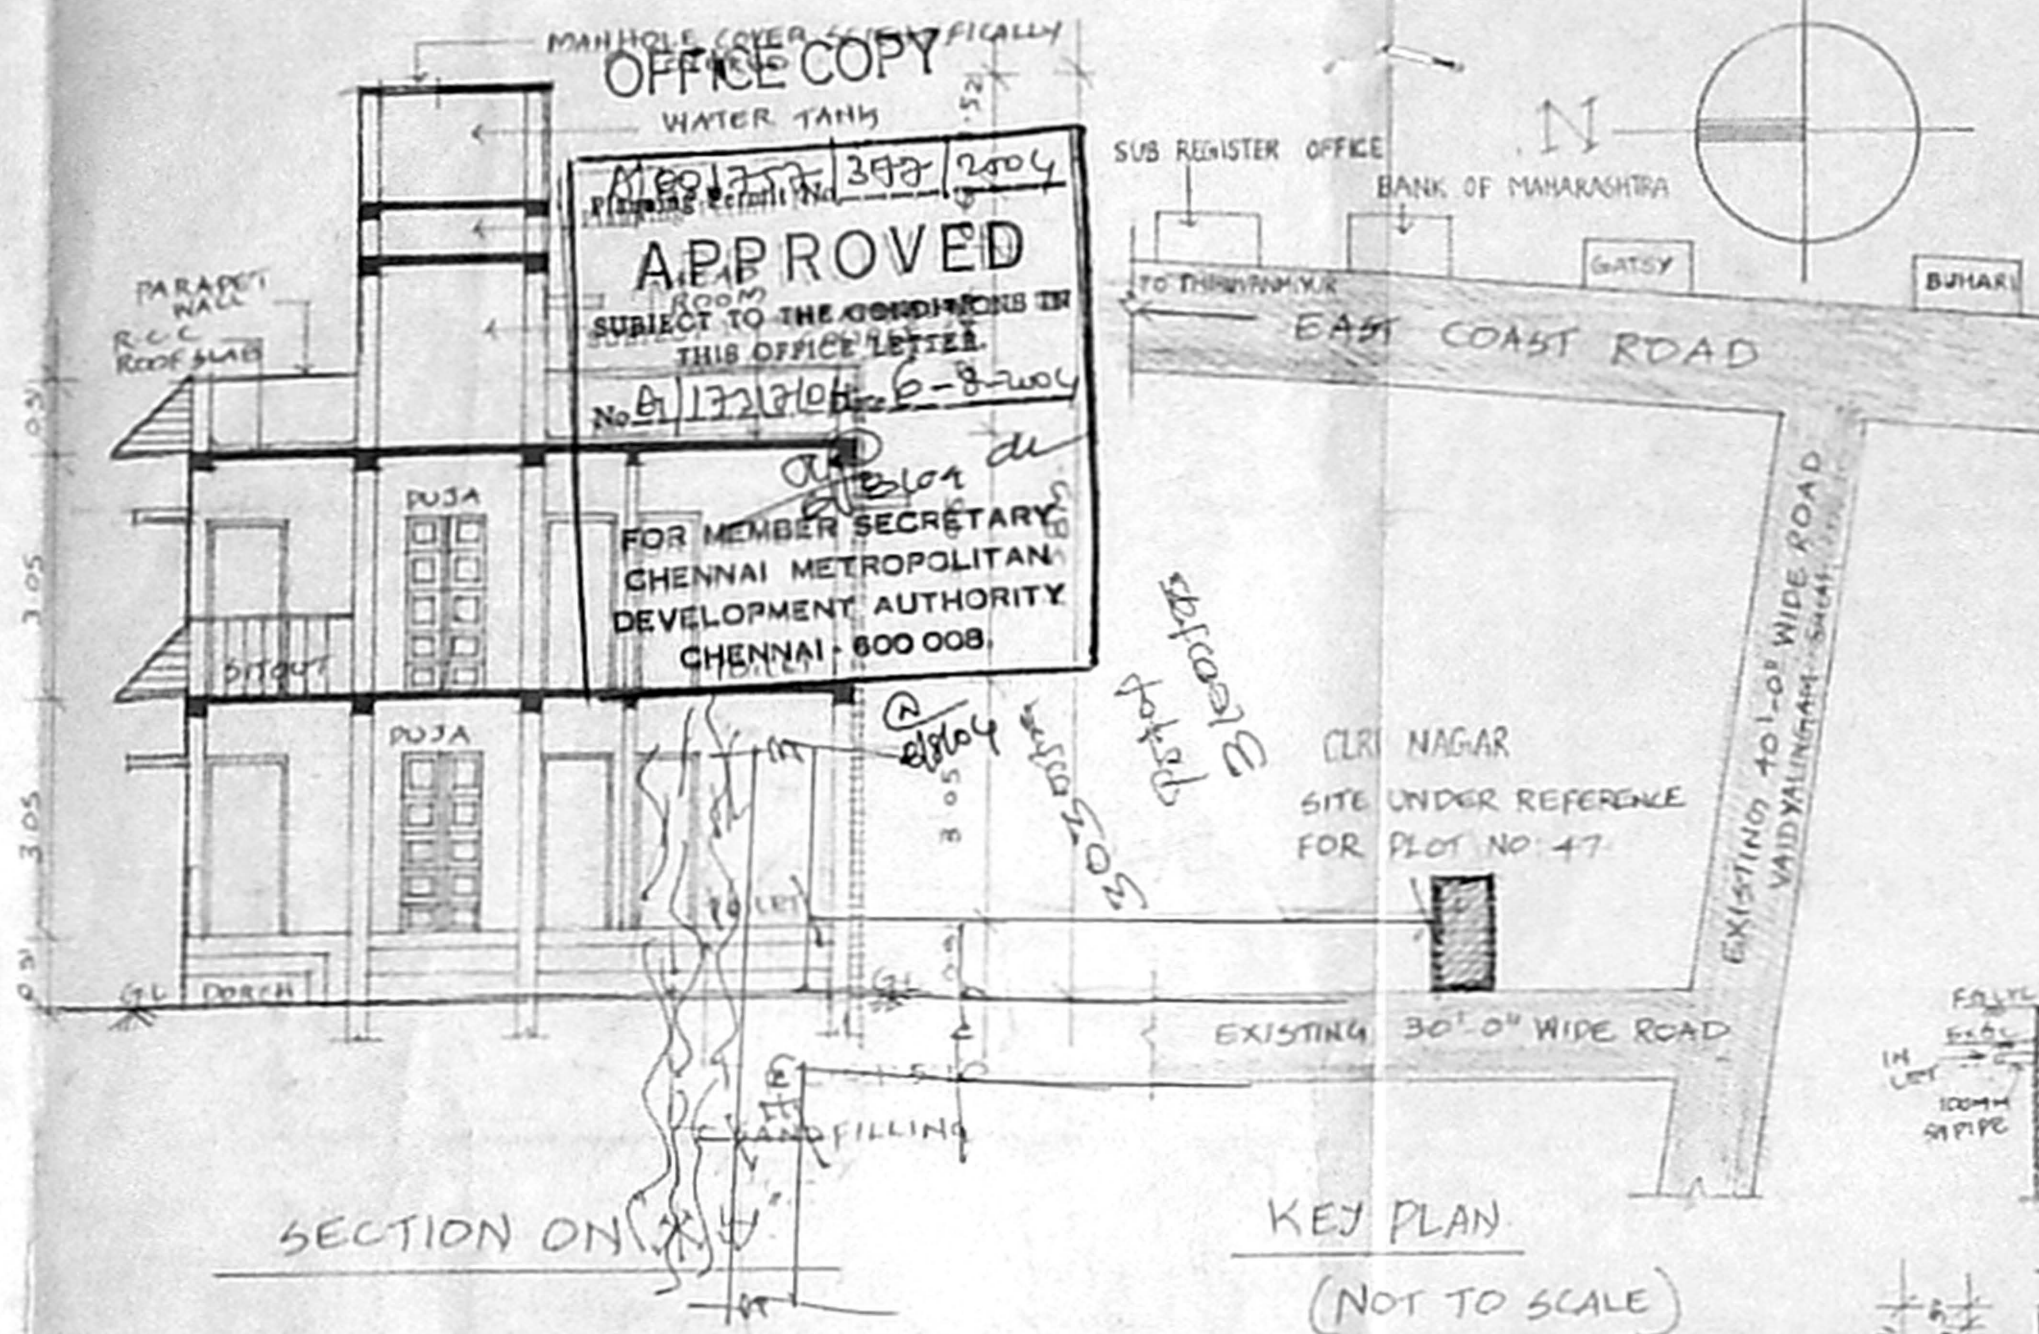 MANHOLE COVER SCIENTIFICALLY
OFFICE COPY
WATER TANK
Planning Permit No. 377/2004
APPROVED
HEAD
ROOM
SUBJECT TO THE CONDITIONS IN
THIS OFFICE LETTER.
No. 6-8-2004
FOR MEMBER SECRETARY
CHENNAI METROPOLITAN
DEVELOPMENT AUTHORITY
CHENNAI - 600 008.
PARAPET
WALL
R.C.C
ROOF SLAB
PUJA
SITOUT
PUJA
TOILET
3.05
3.05
3.05
G.L
PORCH
G.L
SAND FILLING
SECTION ON
N
SUB REGISTER OFFICE
BANK OF MAHARASHTRA
GATSY
BUHARI
TO THIRUVANMIYUR
EAST COAST ROAD
EXISTING 40'-0" WIDE ROAD
VAIDYALINGAM SALAI
CLRI NAGAR
SITE UNDER REFERENCE
FOR PLOT NO: 47
EXISTING 30'-0" WIDE ROAD
KEY PLAN
(NOT TO SCALE)
IN
LET
100MM
SW PIPE